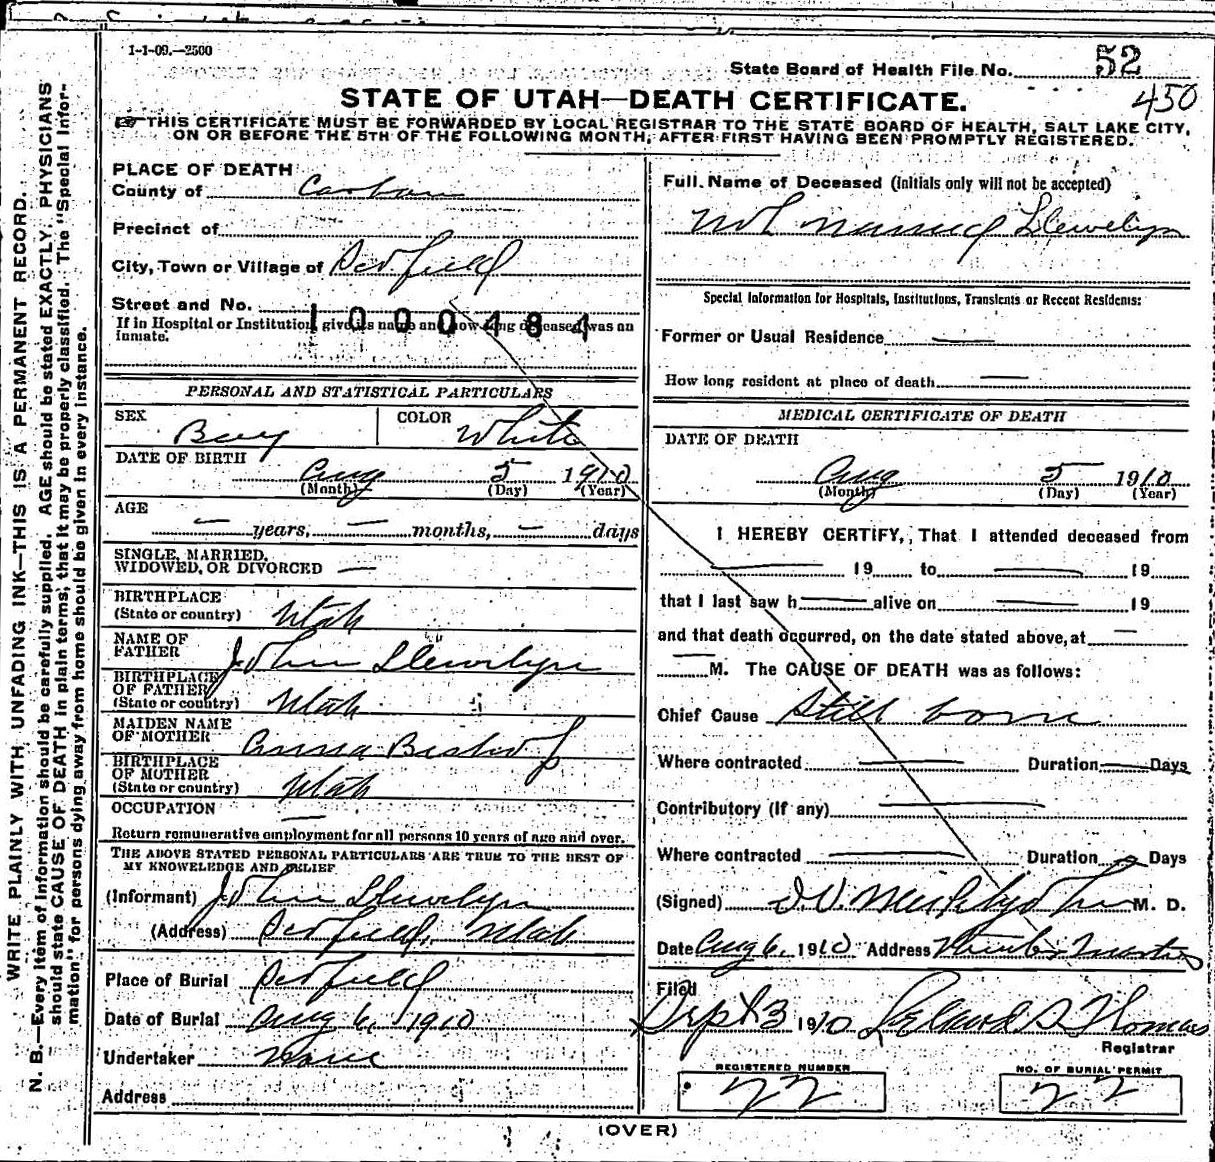 1-1-09.—2500
State Board of Health File No. 52
450
STATE OF UTAH—DEATH CERTIFICATE.
THIS CERTIFICATE MUST BE FORWARDED BY LOCAL REGISTRAR TO THE STATE BOARD OF HEALTH, SALT LAKE CITY,
ON OR BEFORE THE 5TH OF THE FOLLOWING MONTH, AFTER FIRST HAVING BEEN PROMPTLY REGISTERED.
WRITE PLAINLY WITH UNFADING INK—THIS IS A PERMANENT RECORD.
N. B.—Every item of information should be carefully supplied. AGE should be stated EXACTLY. PHYSICIANS
should state CAUSE OF DEATH in plain terms, that it may be properly classified. The "Special Infor-
mation" for persons dying away from home should be given in every instance.
PLACE OF DEATH
County of Carbon
Precinct of
City, Town or Village of
Street and No.
1000484
If in Hospital or Institution, give its name and how long deceased was an
inmate.
PERSONAL AND STATISTICAL PARTICULARS
SEX Boy COLOR White
DATE OF BIRTH
Aug 5 1910
(Month) (Day) (Year)
AGE
years, months, days
SINGLE, MARRIED,
WIDOWED, OR DIVORCED
BIRTHPLACE
(State or country) Utah
NAME OF
FATHER John Llewelyn
BIRTHPLACE
OF FATHER
(State or country) Utah
MAIDEN NAME
OF MOTHER Anna Bishop
BIRTHPLACE
OF MOTHER
(State or country) Utah
OCCUPATION
Return remunerative employment for all persons 10 years of age and over.
THE ABOVE STATED PERSONAL PARTICULARS ARE TRUE TO THE BEST OF
MY KNOWELEDGE AND BELIEF
(Informant) John Llewelyn
(Address) Utah
Place of Burial
Date of Burial Aug 6, 1910
Undertaker None
Address
Full Name of Deceased (Initials only will not be accepted)
Not Named Llewelyn
Special Information for Hospitals, Institutions, Transients or Recent Residents:
Former or Usual Residence
How long resident at place of death
MEDICAL CERTIFICATE OF DEATH
DATE OF DEATH
Aug 5 1910
(Month) (Day) (Year)
I HEREBY CERTIFY, That I attended deceased from
19 to 19
that I last saw h alive on 19
and that death occurred, on the date stated above, at
M. The CAUSE OF DEATH was as follows:
Chief Cause Still born
Where contracted Duration Days
Contributory (If any)
Where contracted Duration Days
(Signed) M. D.
Date Aug 6, 1910 Address
Filed
Sept 3 1910 Leland S Thomas
Registrar
REGISTERED NUMBER
22
NO. OF BURIAL PERMIT
22
(OVER)